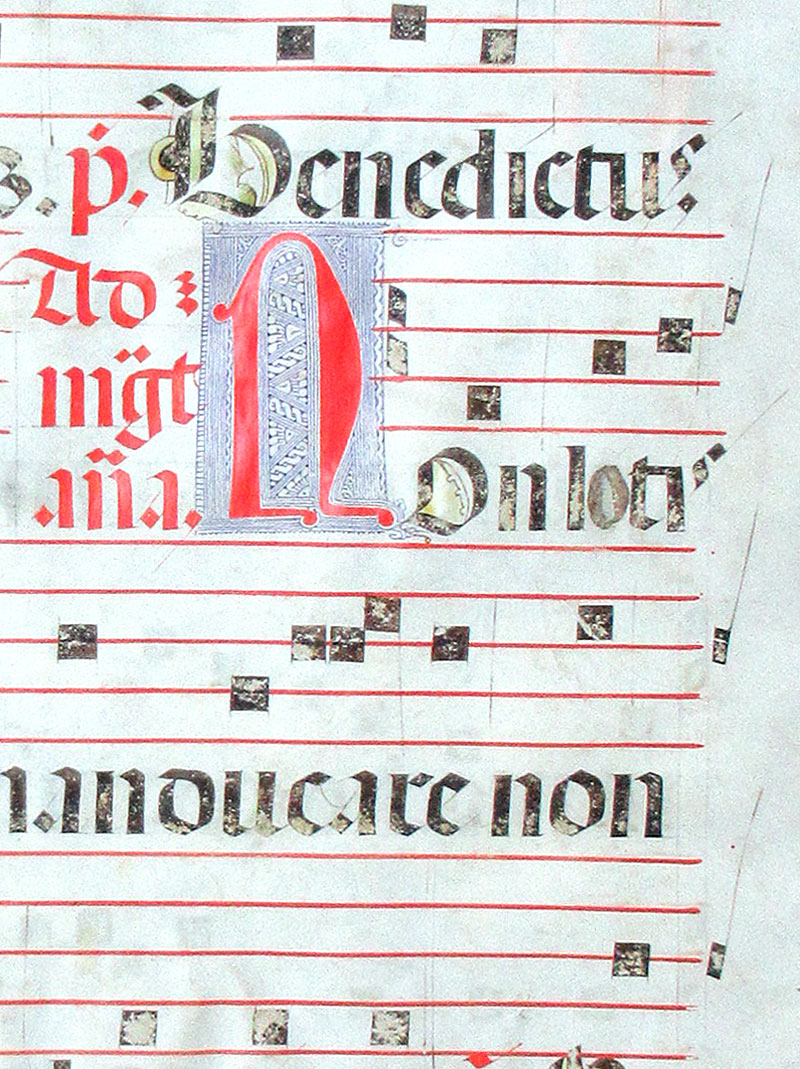 s. p̄. Benedictus
Ad
mg̈t
an̈a. Non lotis
manducare non